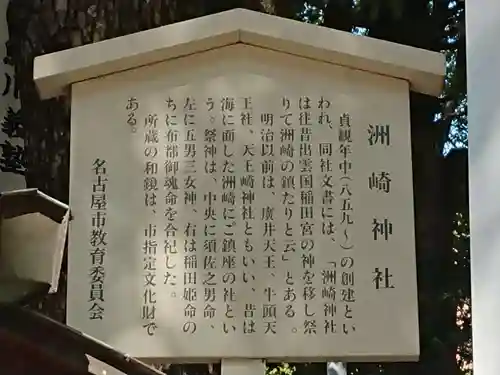 洲崎神社
貞観年中(八五九〜)の創建とい
われ、同社文書には、「洲崎神社
は往昔出雲国稲田宮の神を移し祭
りて洲崎の鎮たりと云」とある。
明治以前は、廣井天王、牛頭天
王社、天王崎神社ともいい、昔は
海に面した洲崎にご鎮座の社とい
う。祭神は、中央に須佐之男命、
左に五男三女神、右は稲田姫命の
ちに布都御魂命を合祀した。
所蔵の和鏡は、市指定文化財で
ある。
名古屋市教育委員会